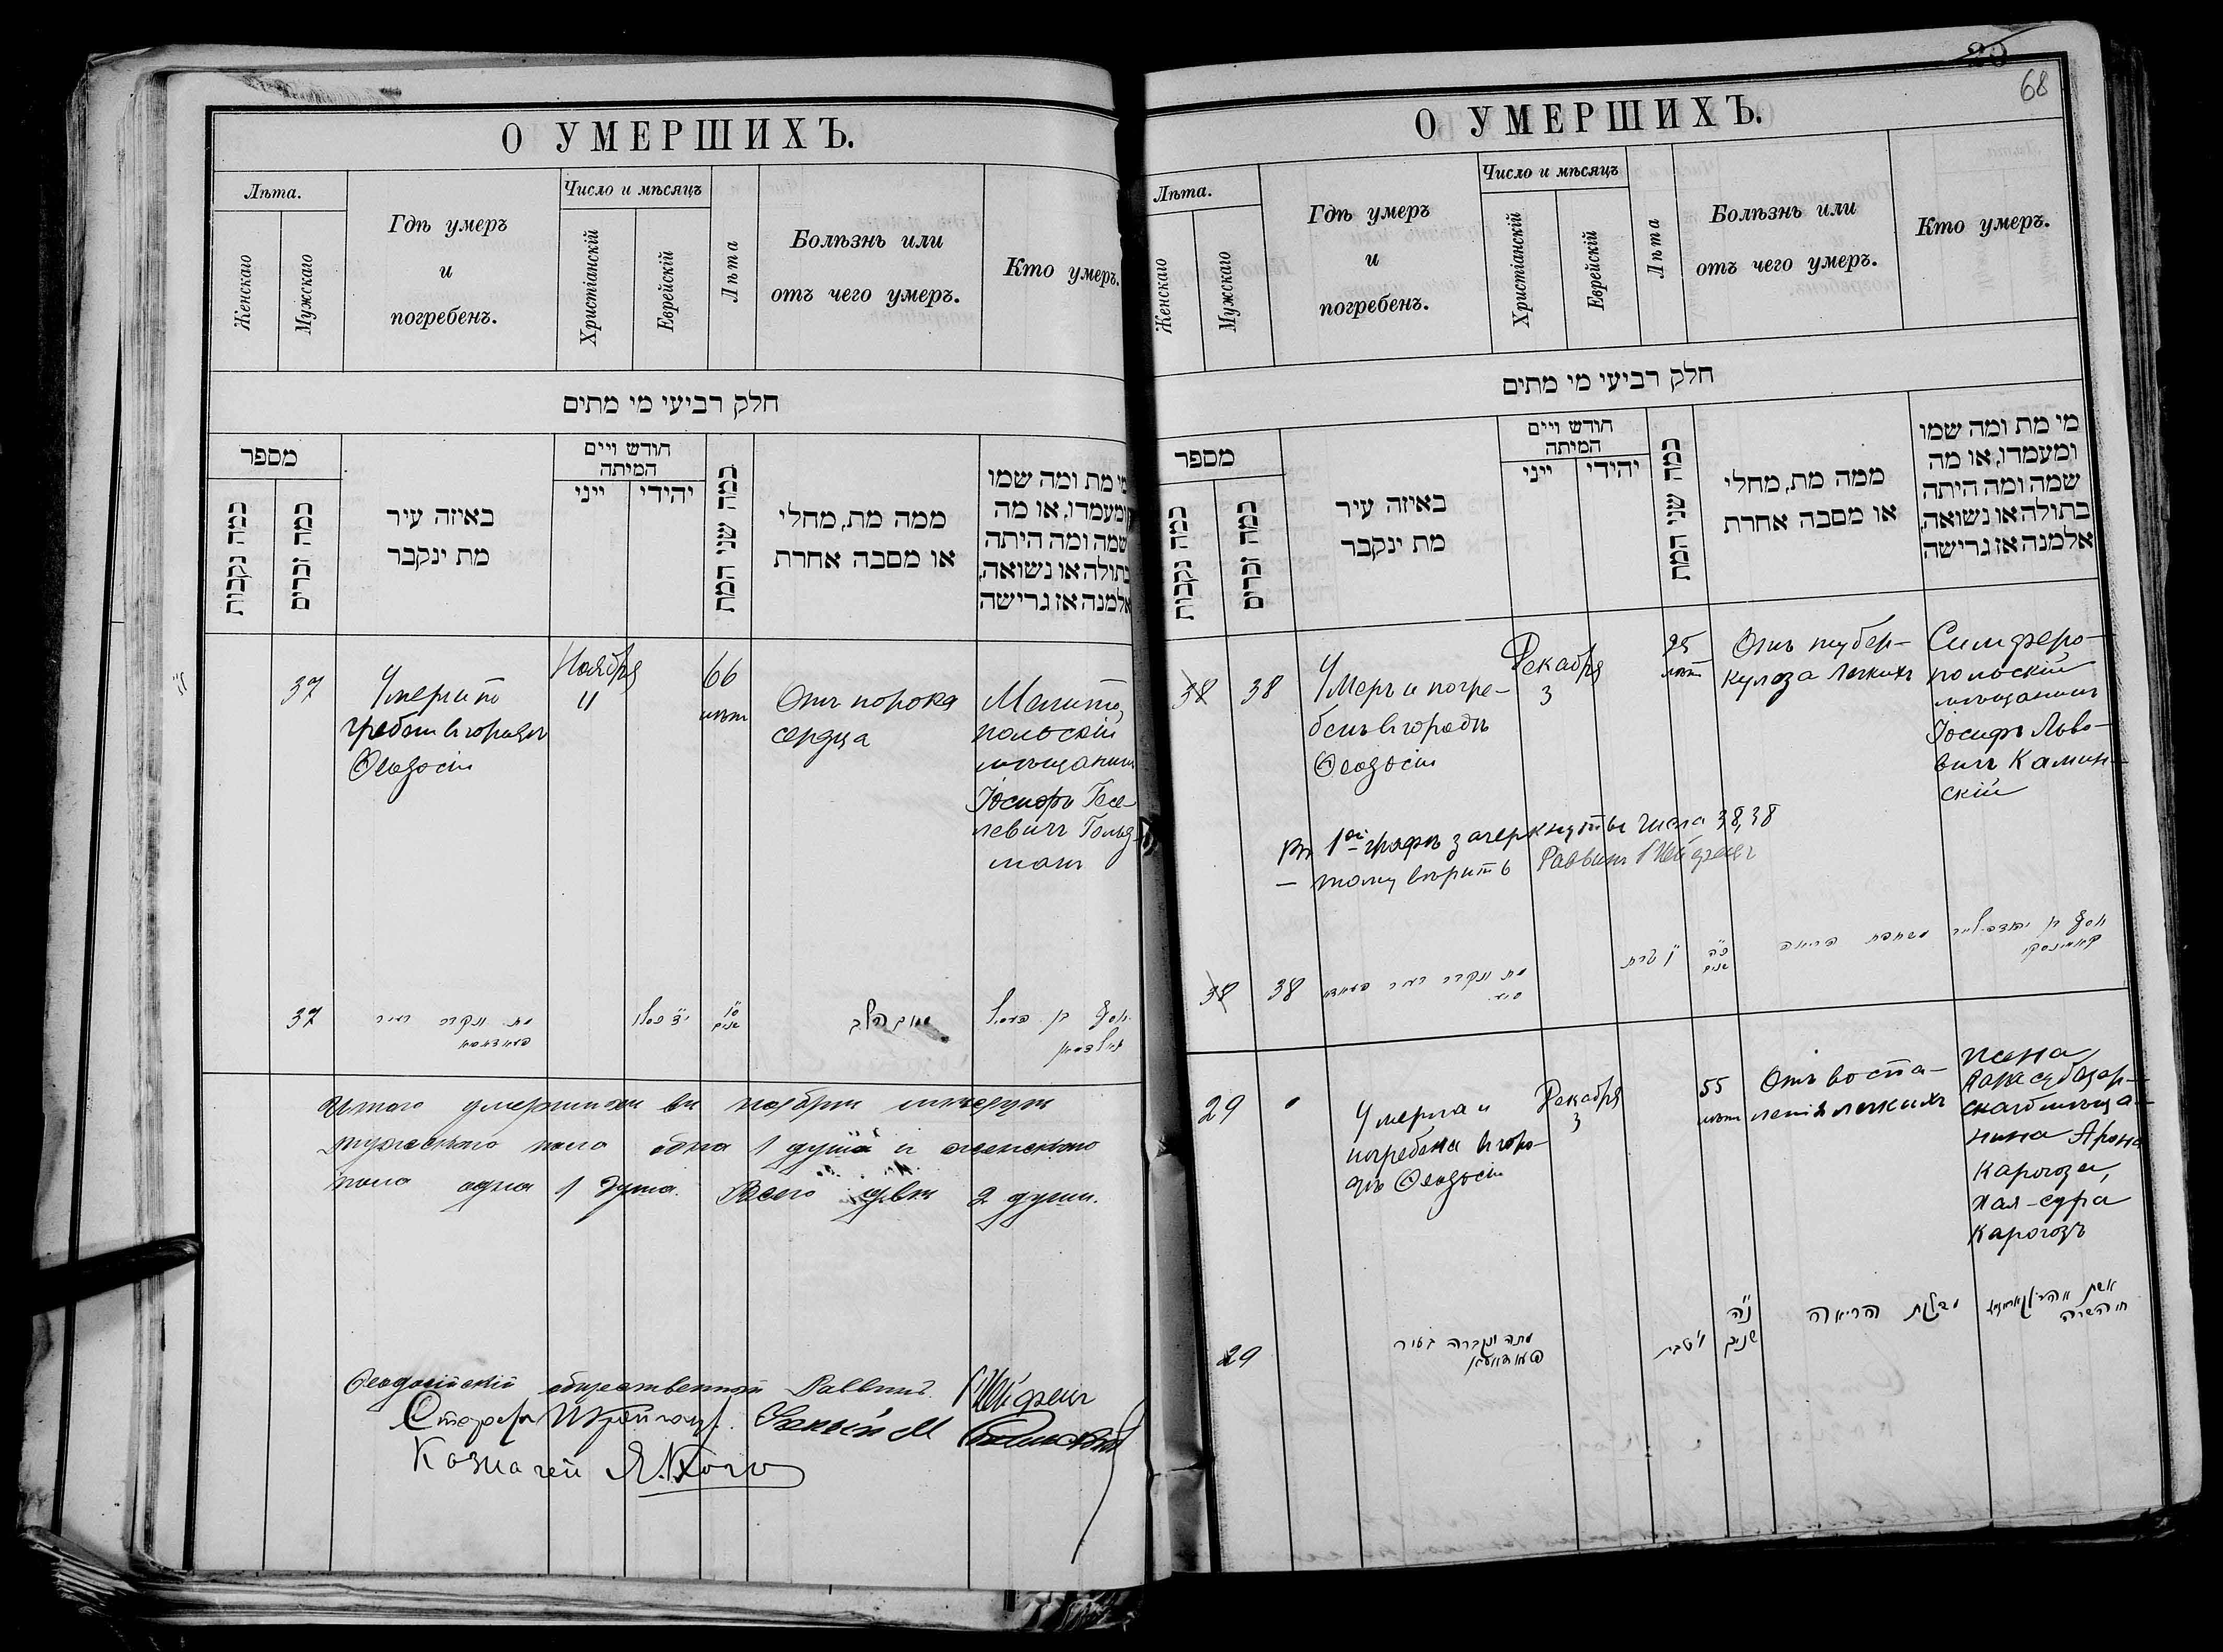 О УМЕРШИХЪ.
Лѣта.
Женскаго
Мужскаго
Гдѣ умеръ
и
погребенъ.
Число и мѣсяцъ
Христіанскій
Еврейскій
Лѣта
Болѣзнь или
отъ чего умеръ.
Кто умеръ.
חלק רביעי מי מתים
מספר
כמה נקבות
כמה זכרים
באיזה עיר
מת ינקבר
חודש ויים
המיתה
ייני
יהודי
כמה שני המת
ממה מת, מחלי
או מסבה אחרת
מי מת ומה שמו
ומעמדו, או מה
שמה ומה היתה
בתולה או נשואה,
אלמנה אז גרישה
37
Умеръ и по
гребенъ въ городѣ
Ѳеодосіи
Ноября
11
66
лѣтъ
Отъ порока
сердца
Мелито
польскій
мѣщанинъ
Іосифъ Гесе
левичъ Гольд
манъ
37
מת ונקבר בעיר
שנים
יוסף בן
Итого умершихъ въ ноябрѣ мѣсяцѣ
мужескаго пола одна 1 душа и женскаго
пола одна 1 душа. Всего двѣ 2 души.
Ѳеодосійскій общественный Раввинъ
Староста
Казначей
23
68
О УМЕРШИХЪ.
Лѣта.
Женскаго
Мужскаго
Гдѣ умеръ
и
погребенъ.
Число и мѣсяцъ
Христіанскій
Еврейскій
Лѣта
Болѣзнь или
отъ чего умеръ.
Кто умеръ.
חלק רביעי מי מתים
מספר
כמה נקבות
כמה זכרים
באיזה עיר
מת ינקבר
חודש ויים
המיתה
ייני
יהודי
כמה שני המת
ממה מת, מחלי
או מסבה אחרת
מי מת ומה שמו
ומעמדו, או מה
שמה ומה היתה
בתולה או נשואה,
אלמנה אז גרישה
38
38
Умеръ и погре-
бенъ въ городѣ
Ѳеодосіи
Декабря
3
25
лѣтъ
Отъ тубер-
кулоза легкихъ
Симферо-
польскій
мѣщанинъ
Іосифъ Льво-
вичъ Камин-
скій
Въ 1ой графѣ зачеркнуты числа 38, 38
— тому вѣрить Раввинъ
38
38
מת ונקבר בעיר
שנים
יוסף בן
קאמינסקי
29
Умерла и
погребена въ горо-
дѣ Ѳеодосіи
Декабря
3
55
лѣтъ
Отъ воспа-
ленія легкихъ
жена
Карасубазар-
скаго мѣща-
нина Арона
Карогоза,
Хая-сура
Карогозъ
29
מתה ונקברה בעיר
נ״ה
שנים
הריאה
אשת